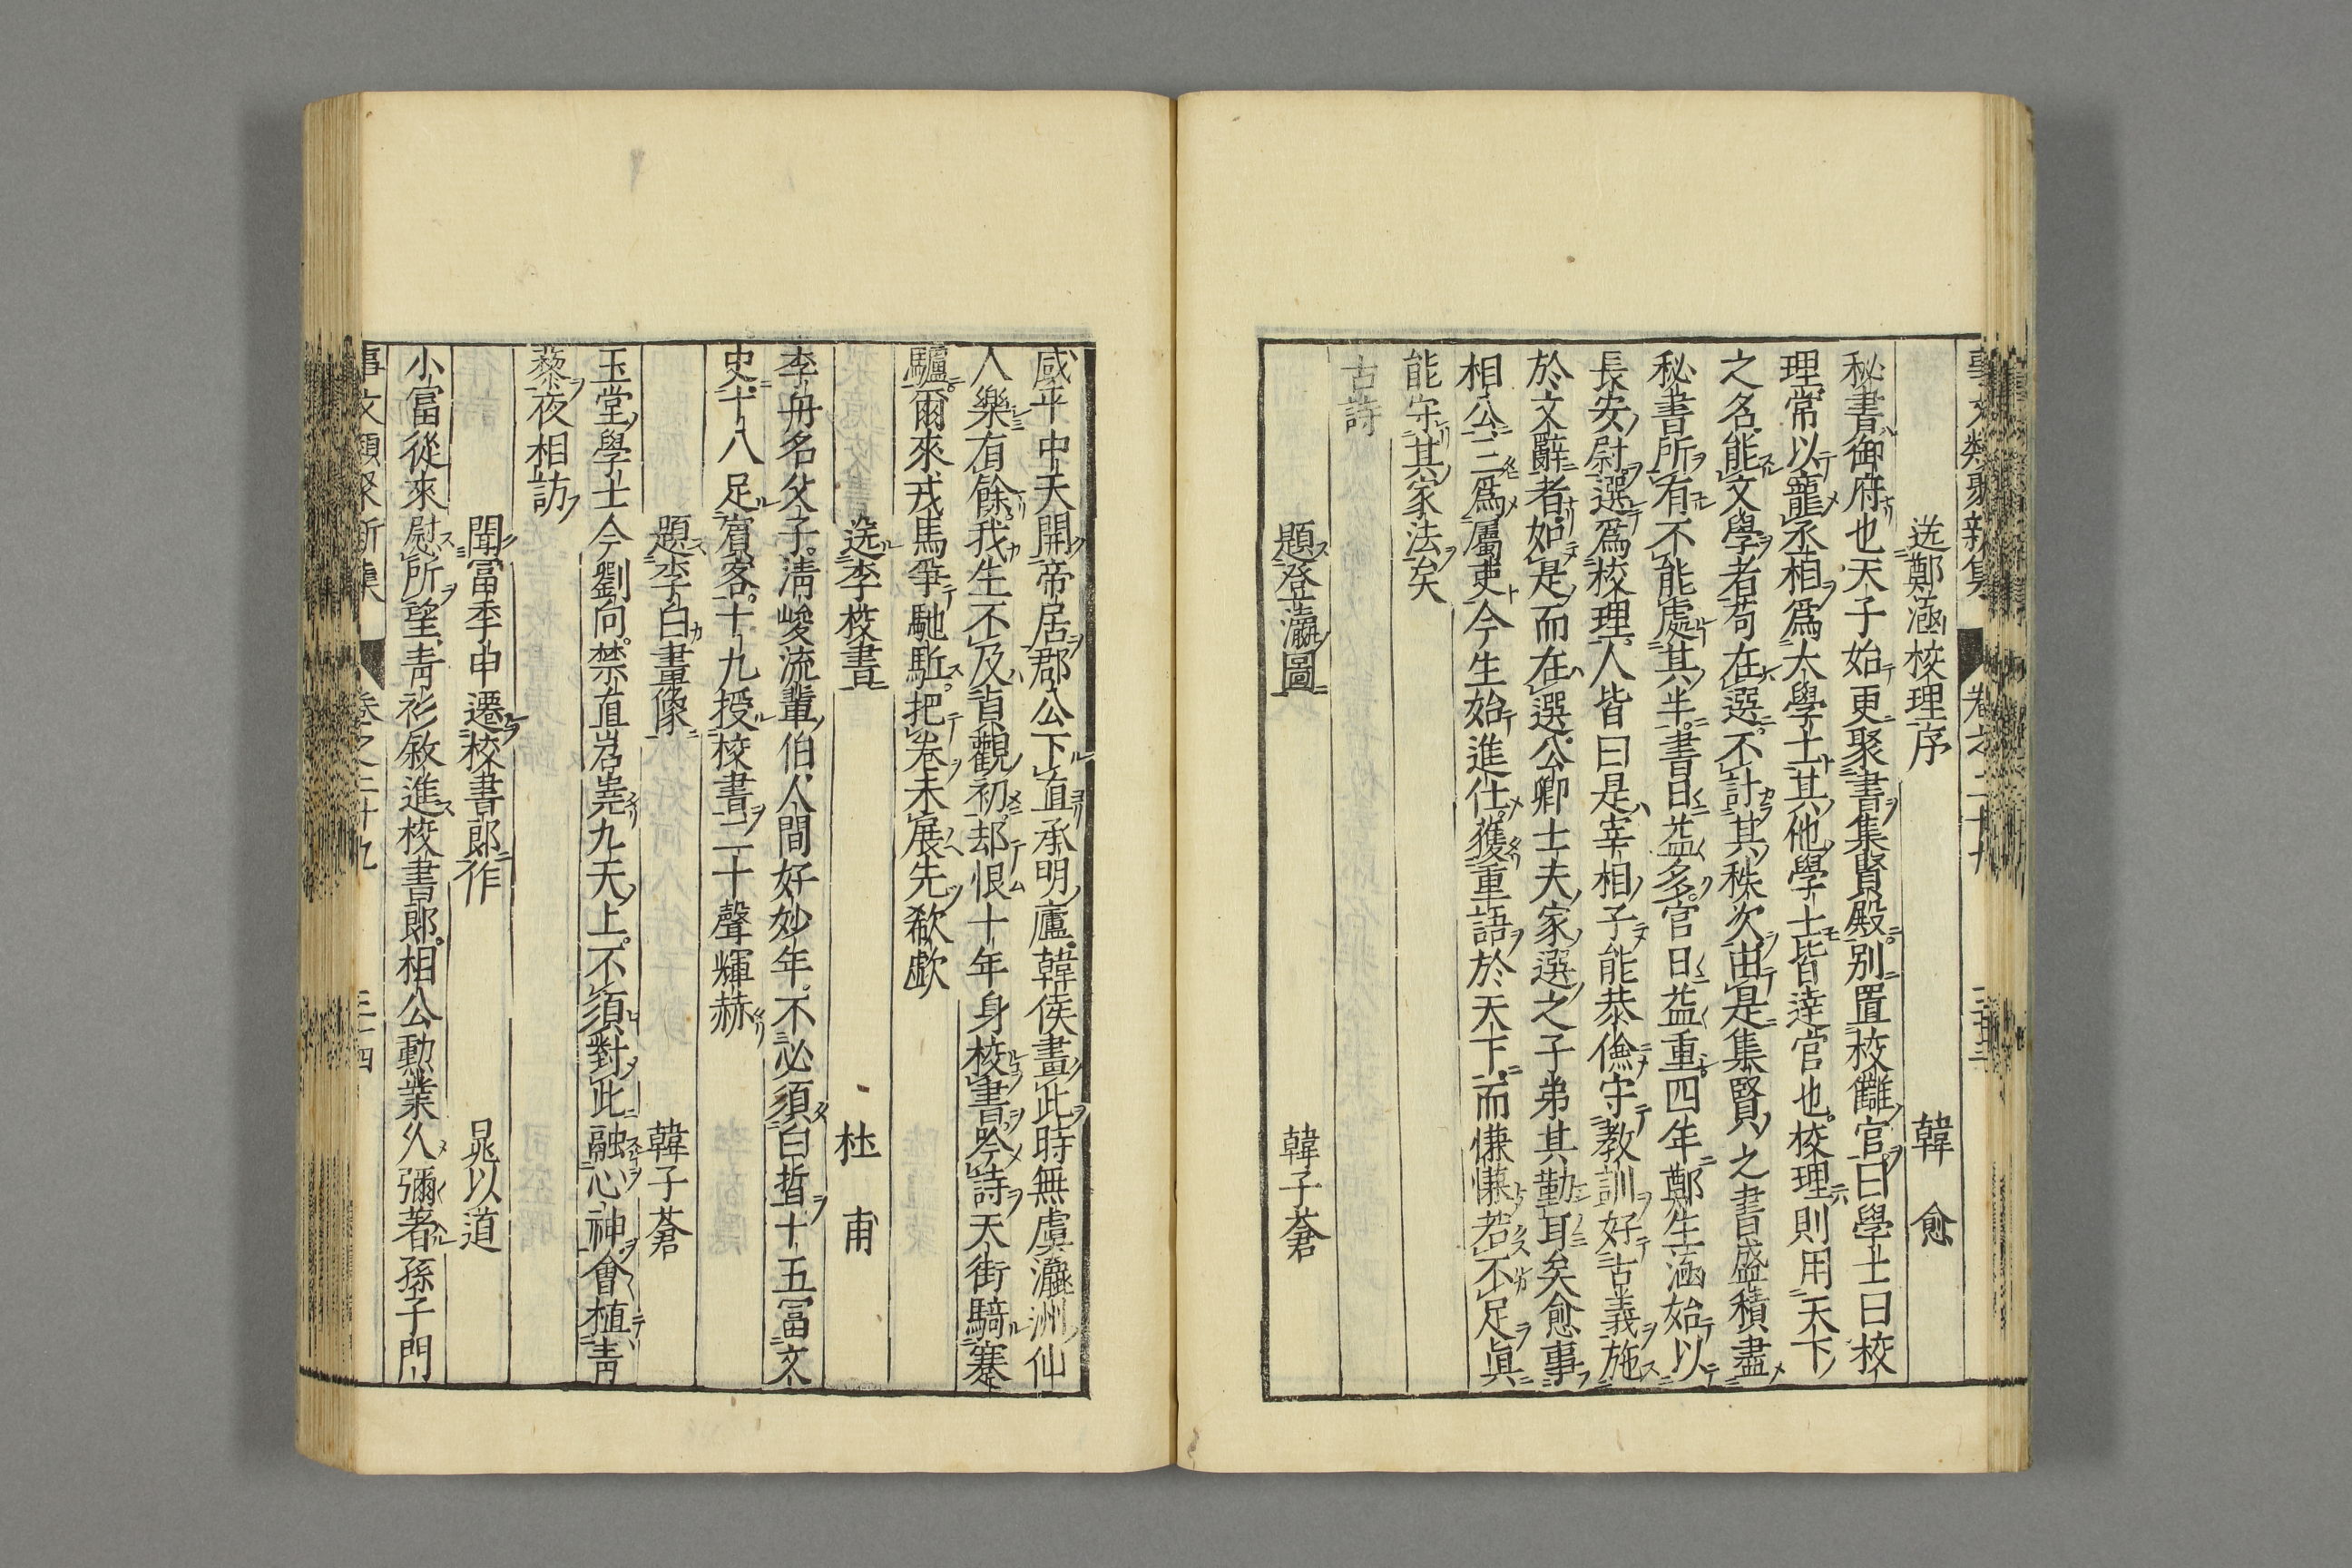 事文類聚新集 卷之二十九
送鄭涵校理序 韓愈
秘書御府也天子始更聚書集賢殿別置校讎官曰學士曰校
理常以寵丞相爲大學士其他學士皆達官也校理則用天下
之名能文學者苟在選不計其秩次由是集賢之書盛積盡
秘書所有不能處其半書日益多官日益重四年鄭生涵始以
長安尉選爲校理人皆曰是宰相子能恭儉守教訓好古義施
於文辭者如是而在選公卿士夫家選之子弟其勤耳矣愈事
相公二爲屬吏今生始進仕獲重語於天下而慊慊若不足眞
能守其家法矣
古詩
題登瀛圖 韓子蒼
咸平中天開帝居郡公下直承明廬韓侯畫此時無虞瀛洲仙
人樂有餘我生不及貞觀初却恨十年身校書吟詩天街騎蹇
驢爾來戎馬爭馳駈把卷未展先欷歔
送李校書 杜甫
李舟名父子清峻流輩伯人間好妙年不必須白晳十五冨文
史十八足賓客十九授校書二十聲輝赫
題李白畫像 韓子蒼
玉堂學士今劉向禁直岧嶤九天上不須對此融心神會植青
藜夜相訪
聞富季申遷校書郎作 晁以道
小富從來慰所望青衫敘進校書郎相公勳業久彌著孫子門
事文類聚新集 卷之二十九 三十四